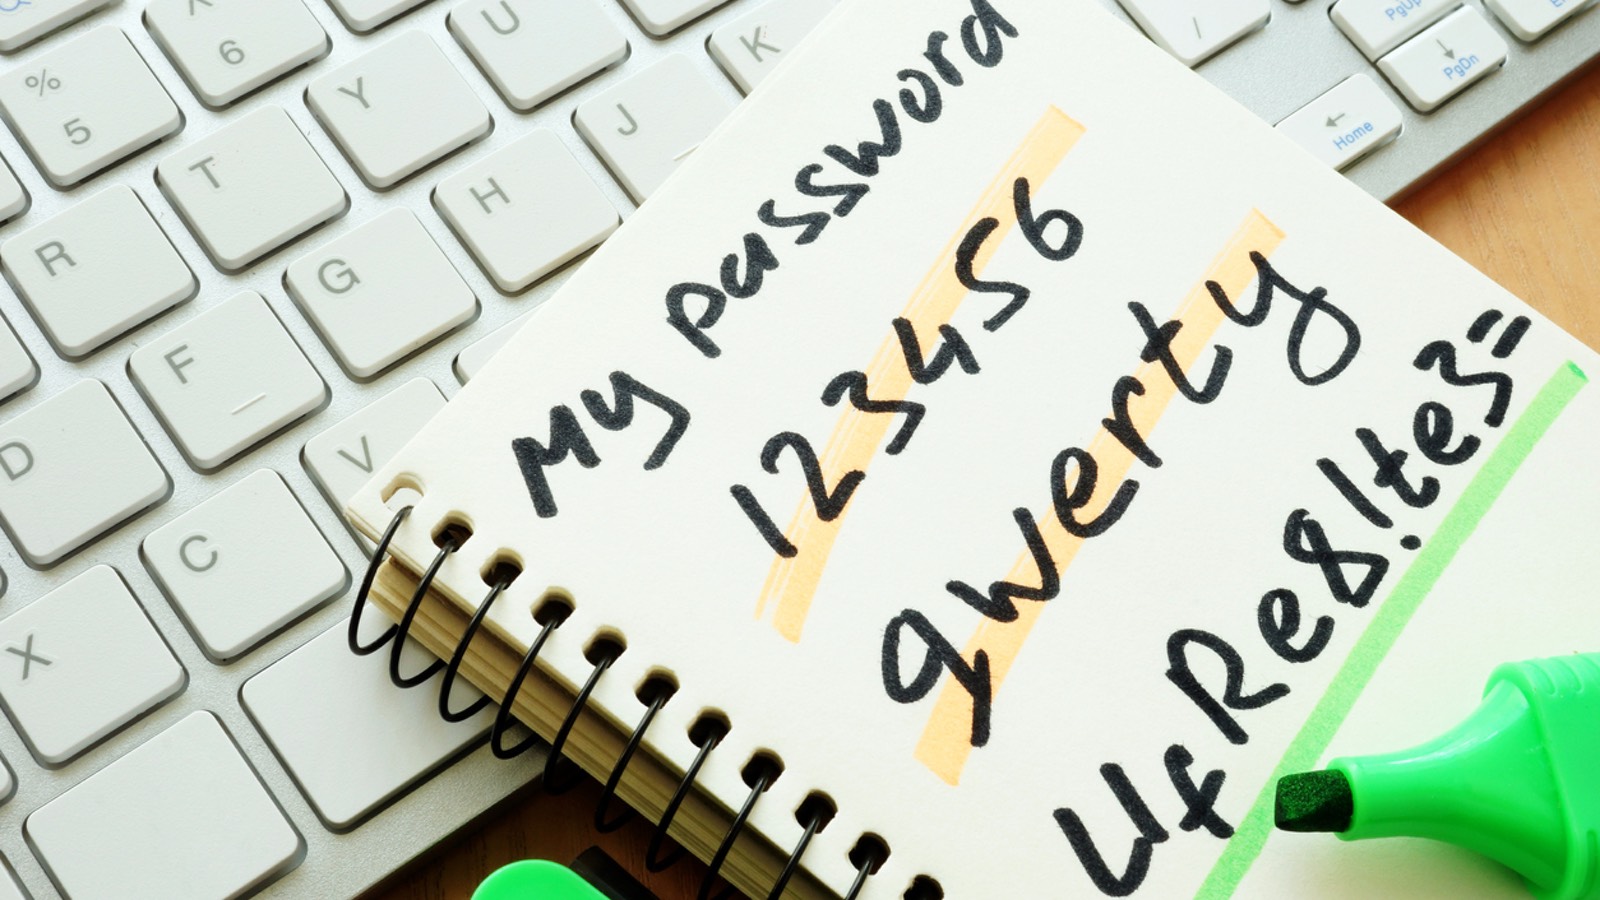 My password
123456
qwerty
UfRe8!te3=
%
5
^
6
Y
U
K
/
PgUp
↓
PgDn
←
Home
R
T
H
J
G
F
D
V
C
X